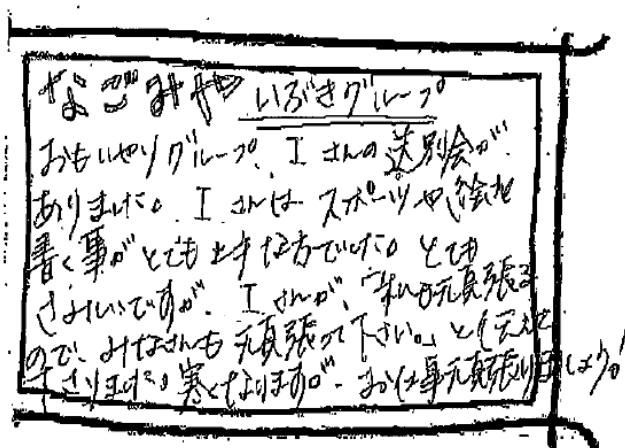 なごみや いぶきグループ
おもいやりグループ、Iさんの送別会が
ありました。Iさんはスポーツや絵を
書く事がとても好きな方でした。とても
さみしいですが、Iさんが、「私も頑張る
ので、みなさんも頑張って下さい。」と伝えて
下さりました。寒くなりますが、お仕事頑張りましょう。